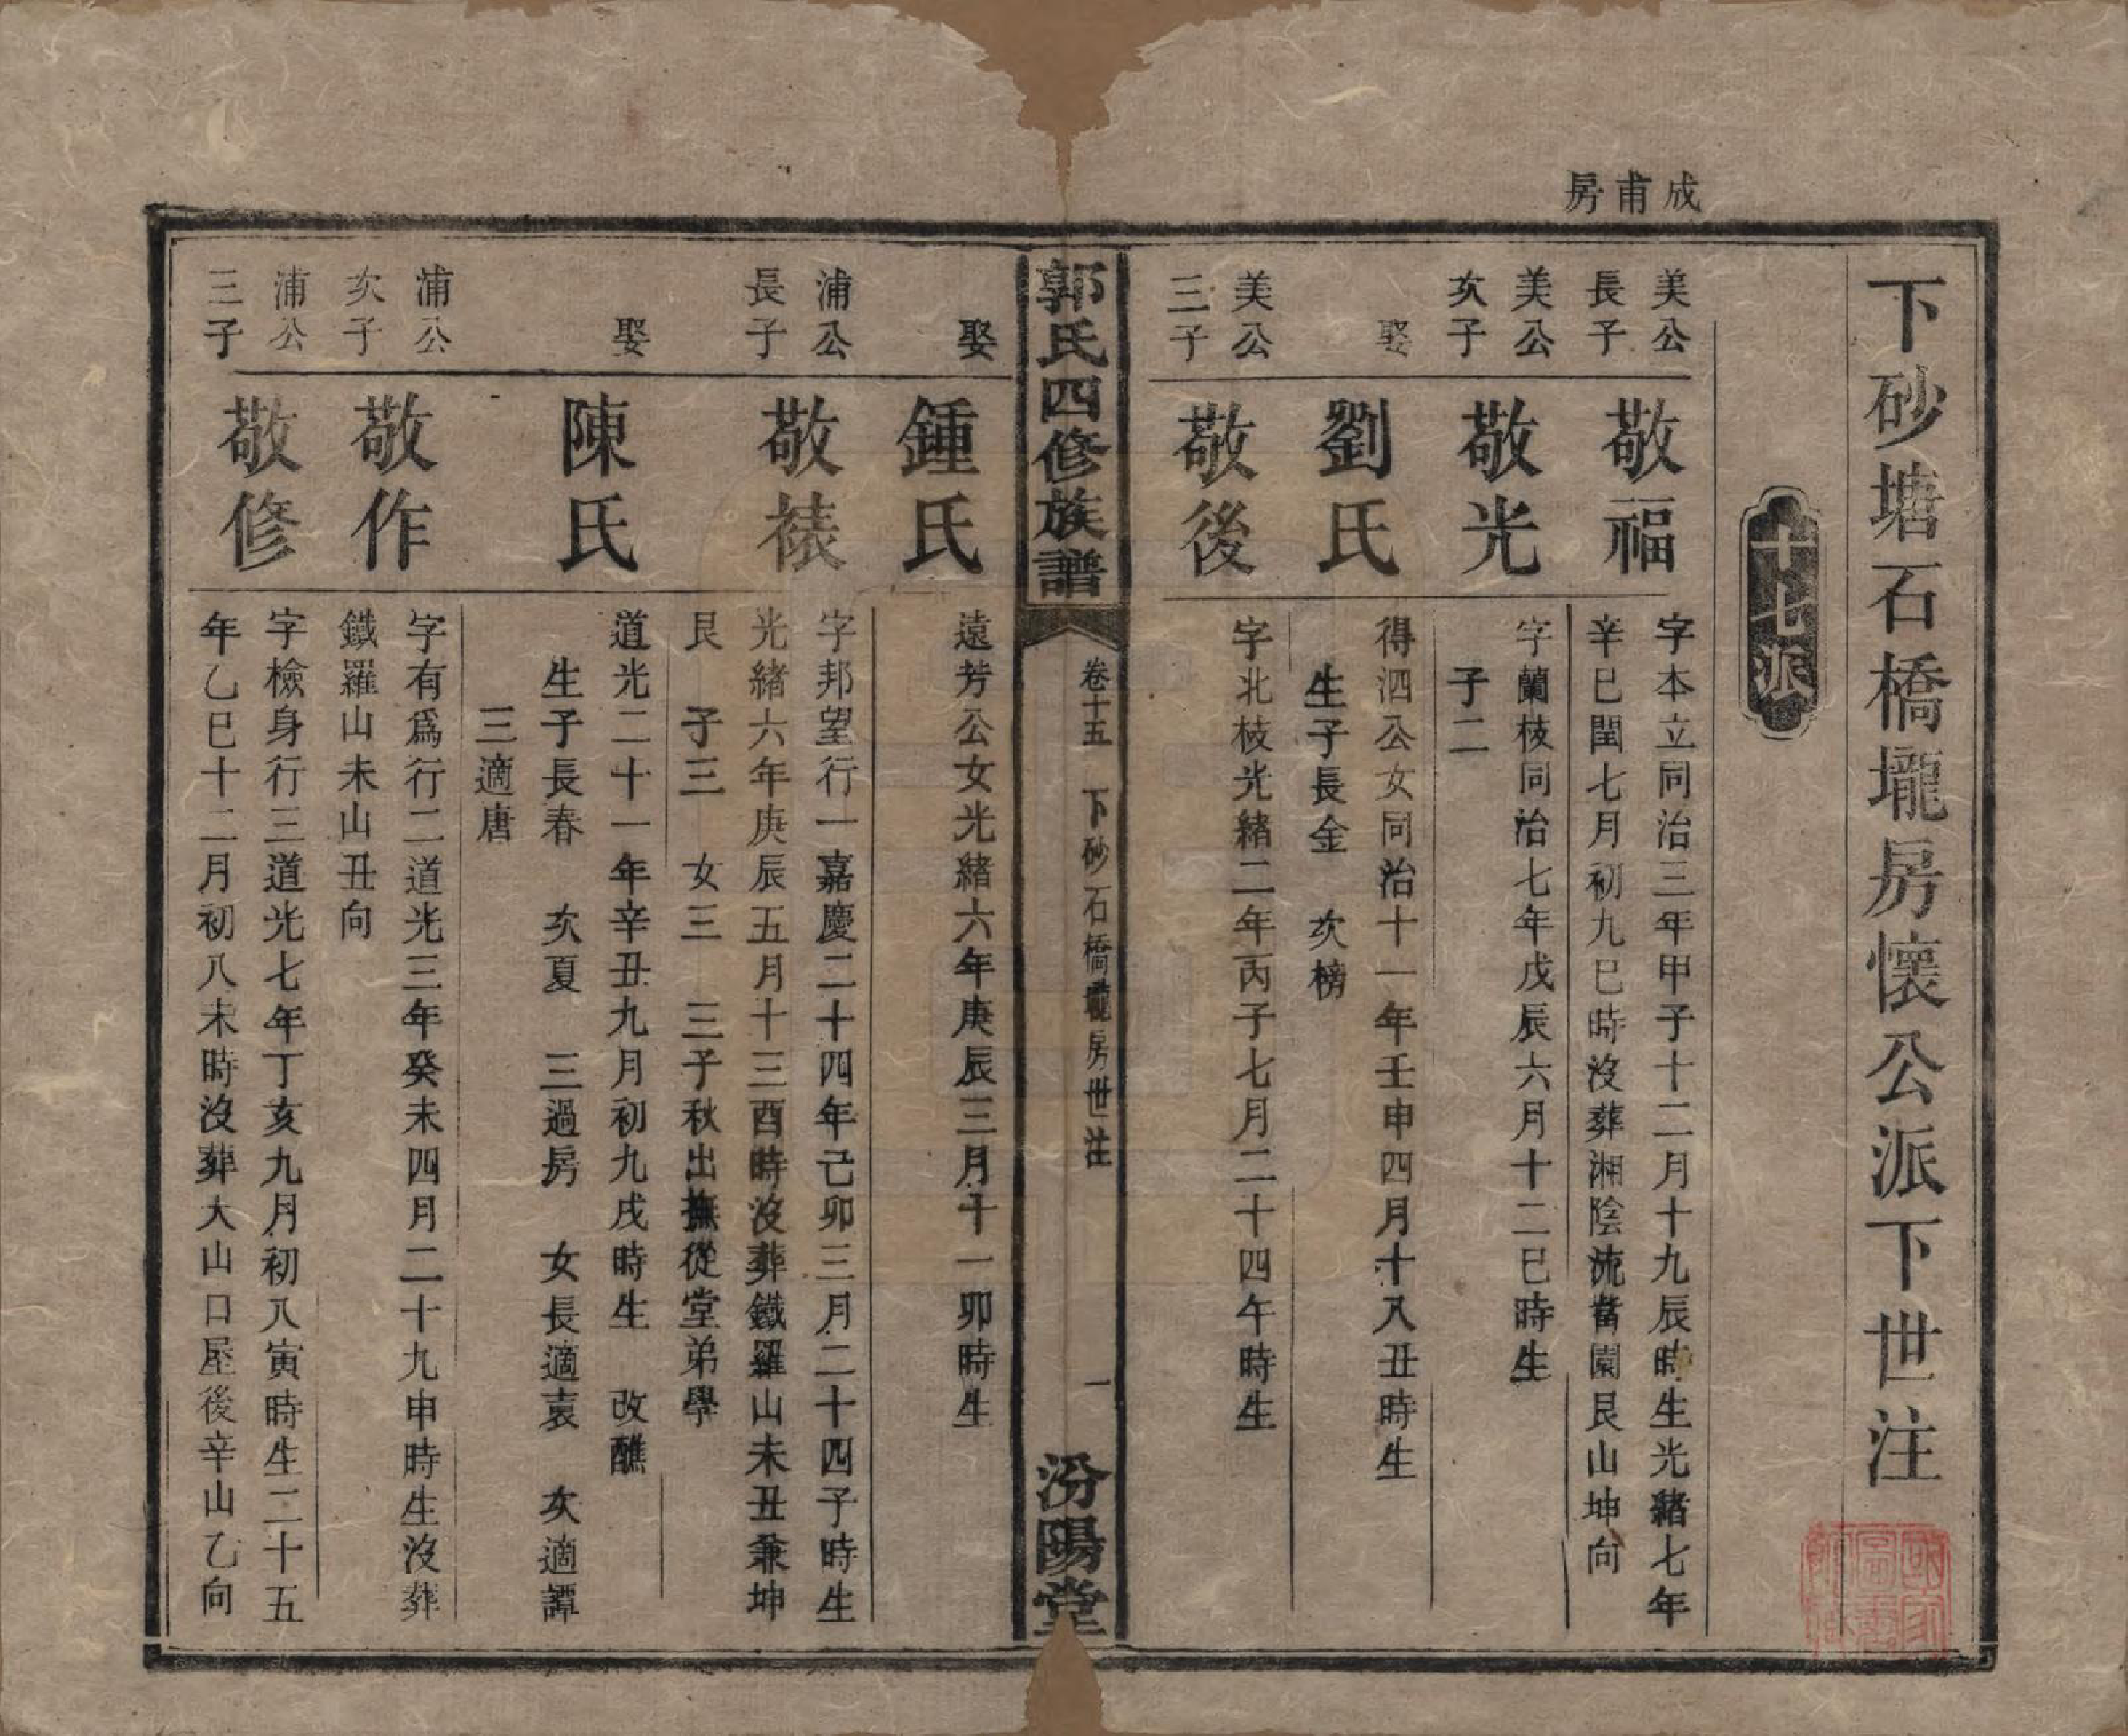 成甫房
下砂塘石橋壠房懷公派下世注
十七派
美公
長子
敬福
字本立同治三年甲子十二月十九辰時生光緒七年
辛巳閏七月初九巳時沒葬湘陰流嘗園艮山坤向
美公
次子
敬光
字蘭枝同治七年戊辰六月十二巳時生
子二
娶
劉氏
得泗公女同治十一年壬申四月十八丑時生
生子長金　次榜
美公
三子
敬後
字北枝光緒二年丙子七月二十四午時生
郭氏四修族譜
卷十五　下砂石橋壠房世注
一
汾陽堂
娶
鍾氏
遠芳公女光緒六年庚辰三月十一卯時生
浦公
長子
敬裱
字邦望行一嘉慶二十四年己卯三月二十四子時生
光緒六年庚辰五月十三酉時沒葬鐵羅山未丑兼坤
艮　子三　女三　三子秋出撫從堂弟學
娶
陳氏
道光二十一年辛丑九月初九戌時生　改醮
生子長春　次夏　三過房　女長適袁　次適譚
三適唐
浦公
次子
敬作
字有為行二道光三年癸未四月二十九申時生沒葬
鐵羅山未山丑向
浦公
三子
敬修
字檢身行三道光七年丁亥九月初八寅時生二十五
年乙巳十二月初八未時沒葬大山口屋後辛山乙向